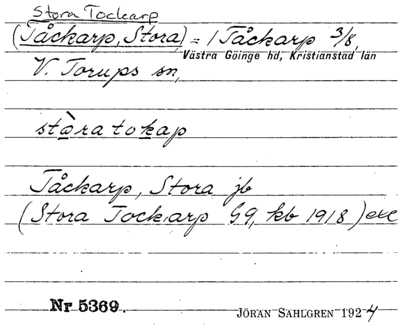 Stora Tockarp
(Tåckarp, Stora) = 1 Tåckarp 3/8,
Västra Göinge hd, Kristianstad län
V. Torups sn,
stòratokap
Tåckarp, Stora jb
(Stora Tockarp G9, kb 1918)
Nr 5369.
JÖRAN SAHLGREN 1924